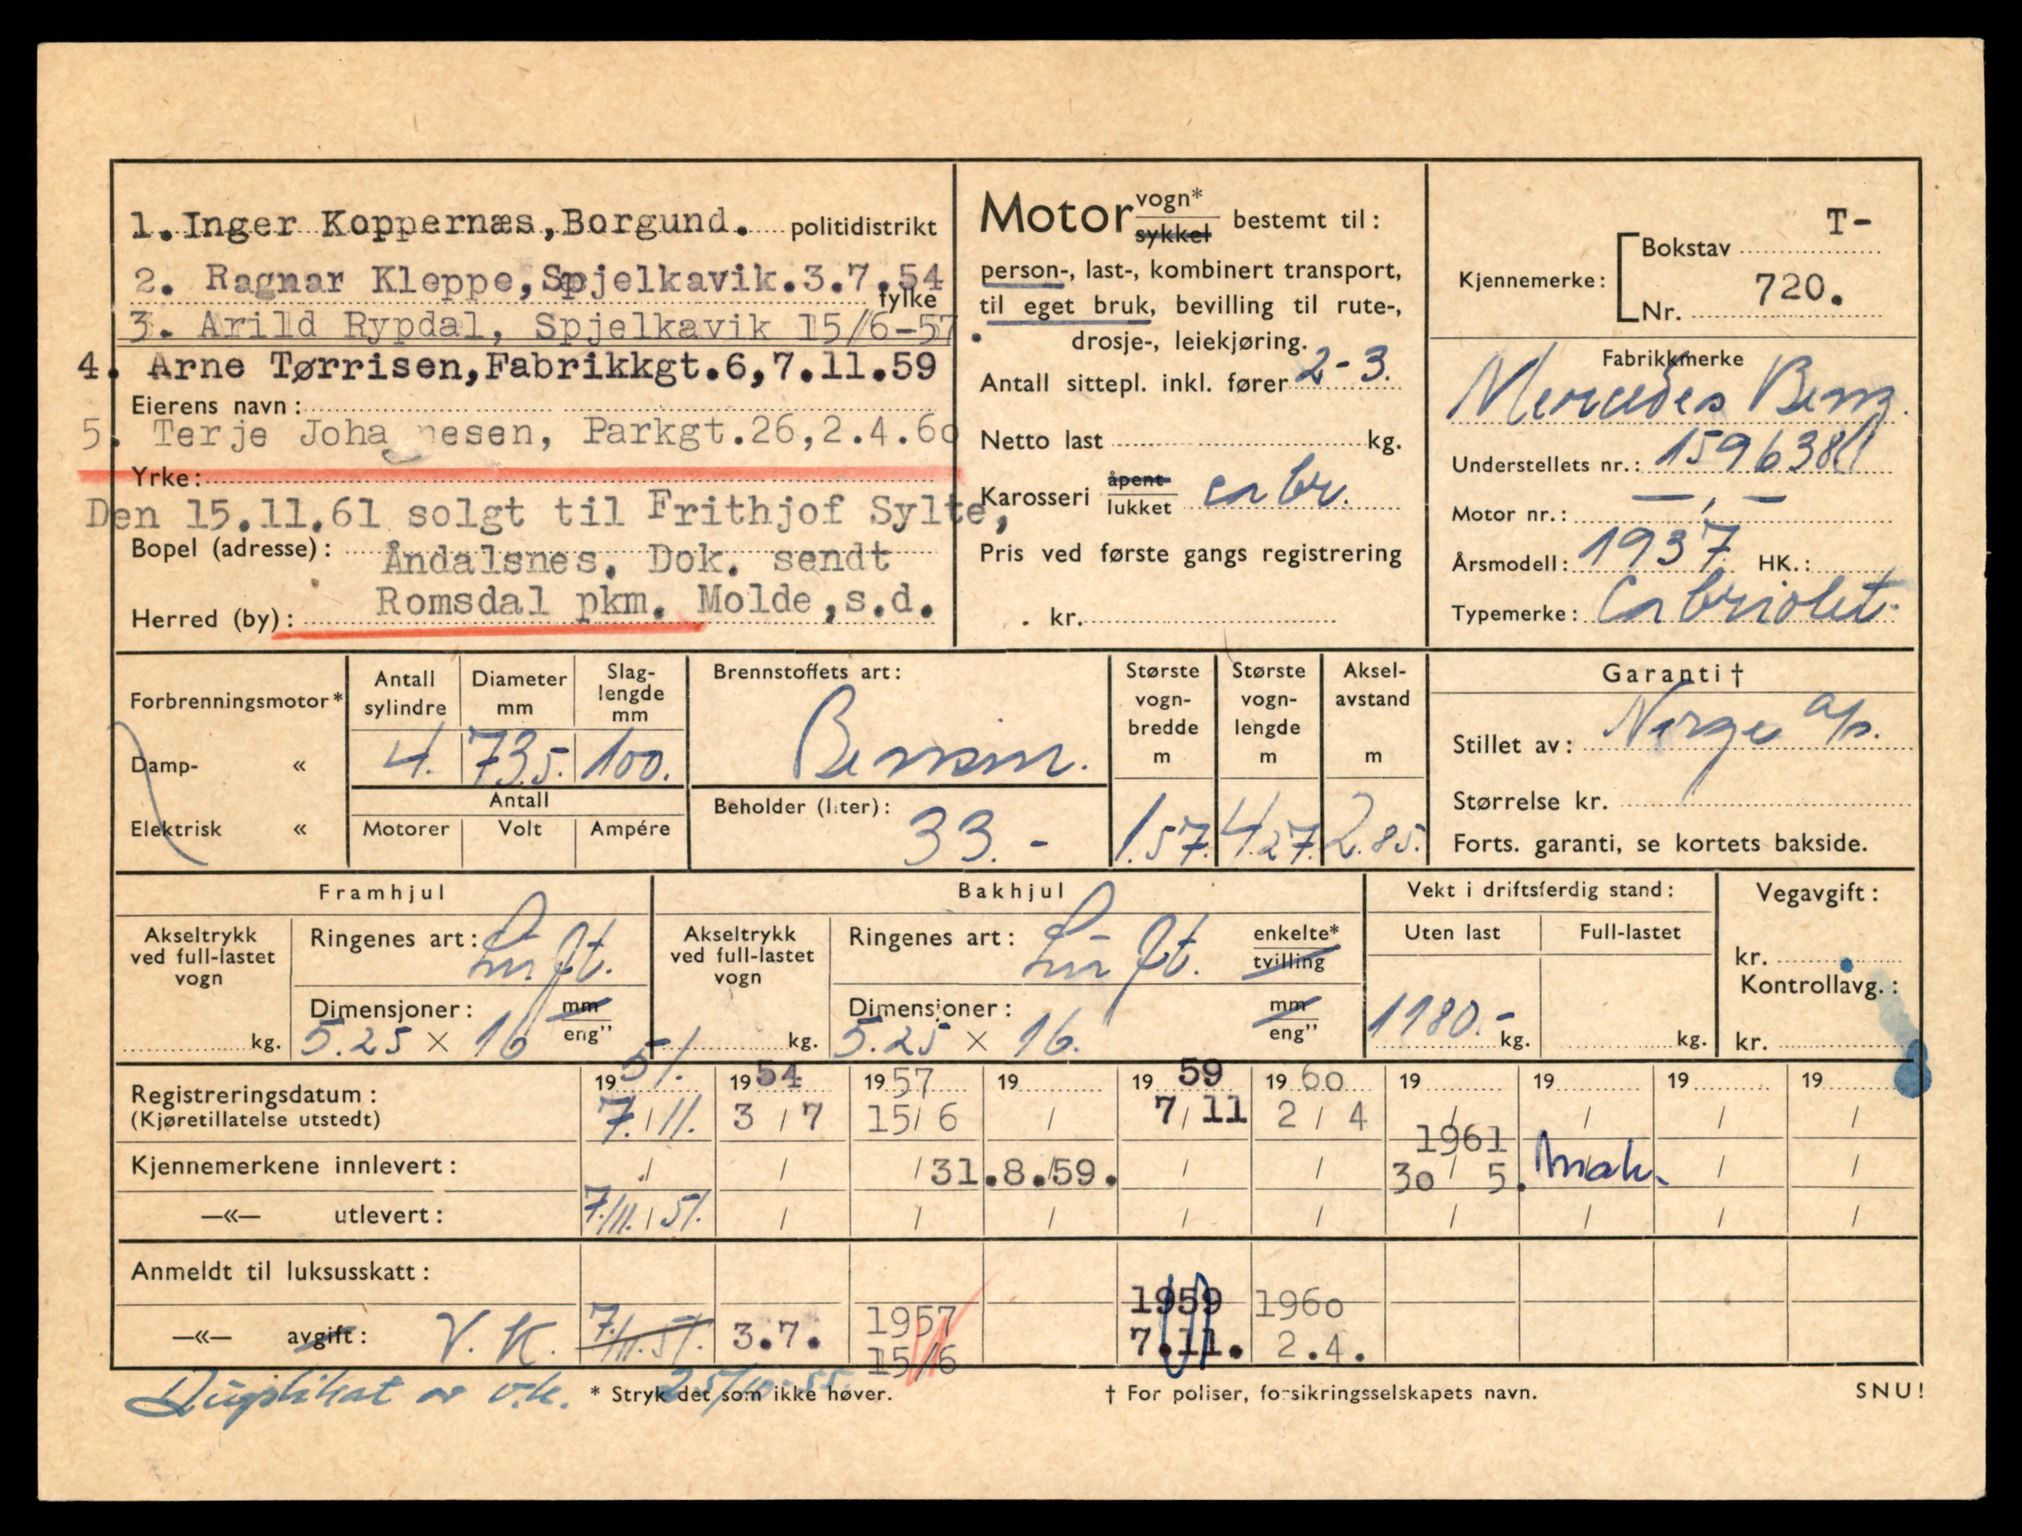 1. Inger Koppernæs, Borgund. politidistrikt
2. Ragnar Kleppe, Spjelkavik. 3.7.54
fylke
3. Arild Rypdal, Spjelkavik 15/6-57
4. Arne Tørrisen, Fabrikkgt.6, 7.11.59
Eierens navn:
5. Terje Joha nesen, Parkgt.26, 2.4.60
Yrke:
Den 15.11.61 solgt til Frithjof Sylte,
Bopel (adresse): Åndalsnes. Dok. sendt
Romsdal pkm. Molde, s.d.
Herred (by):
Motor vogn* sykkel bestemt til:
person-, last-, kombinert transport,
til eget bruk, bevilling til rute-,
drosje-, leiekjøring.
Antall sittepl. inkl. fører 2-3.
Netto last kg.
Karosseri åpent lukket cabr.
Pris ved første gangs registrering
kr.
Kjennemerke: Bokstav T-
Nr. 720.
Fabrikkmerke
Mercedes Benz.
Understellets nr.: 159638
Motor nr.: — " —
Årsmodell: 1937. HK.:
Typemerke: Cabriolet.
Forbrenningsmotor*
Damp- «
Elektrisk «
Antall sylindre
4.
Diameter mm
73.5.
Slag-lengde mm
100.
Antall
Motorer Volt Ampére
Brennstoffets art:
Bensin.
Beholder (liter): 33.-
Største vogn-bredde m
1.57.
Største vogn-lengde m
4.27.
Aksel-avstand m
2.85.
Garanti †
Stillet av: Norge a/s.
Størrelse kr.
Forts. garanti, se kortets bakside.
Framhjul
Akseltrykk ved full-lastet vogn
kg.
Ringenes art: Luft.
Dimensjoner: mm eng”
5.25 × 16
Bakhjul
Akseltrykk ved full-lastet vogn
kg.
Ringenes art: Luft. enkelte* tvilling
Dimensjoner: mm eng”
5.25 × 16.
Vekt i driftsferdig stand:
Uten last Full-lastet
1180.- kg. kg.
Vegavgift:
kr.
Kontrollavg.:
kr.
Registreringsdatum: 1951. 1954 1957 19 1959 1960 19 19 19 19
(Kjøretillatelse utstedt) 7./11. 3/7 15/6 / 7/11 2/4 / / / /
1961
Kjennemerkene innlevert: / / / 31.8.59. / / 30/5. / /
—«— utlevert: 7./11./51. / / / / / / / / /
Anmeldt til luksusskatt:
—«— avgift: V.K. 7./11.51. 3.7. 1957 15/6 1959 7.11. 1960 2.4.
Duplikat av v.k. 25/10-55.
* Stryk det som ikke høver.
† For poliser, forsikringsselskapets navn.
SNU!